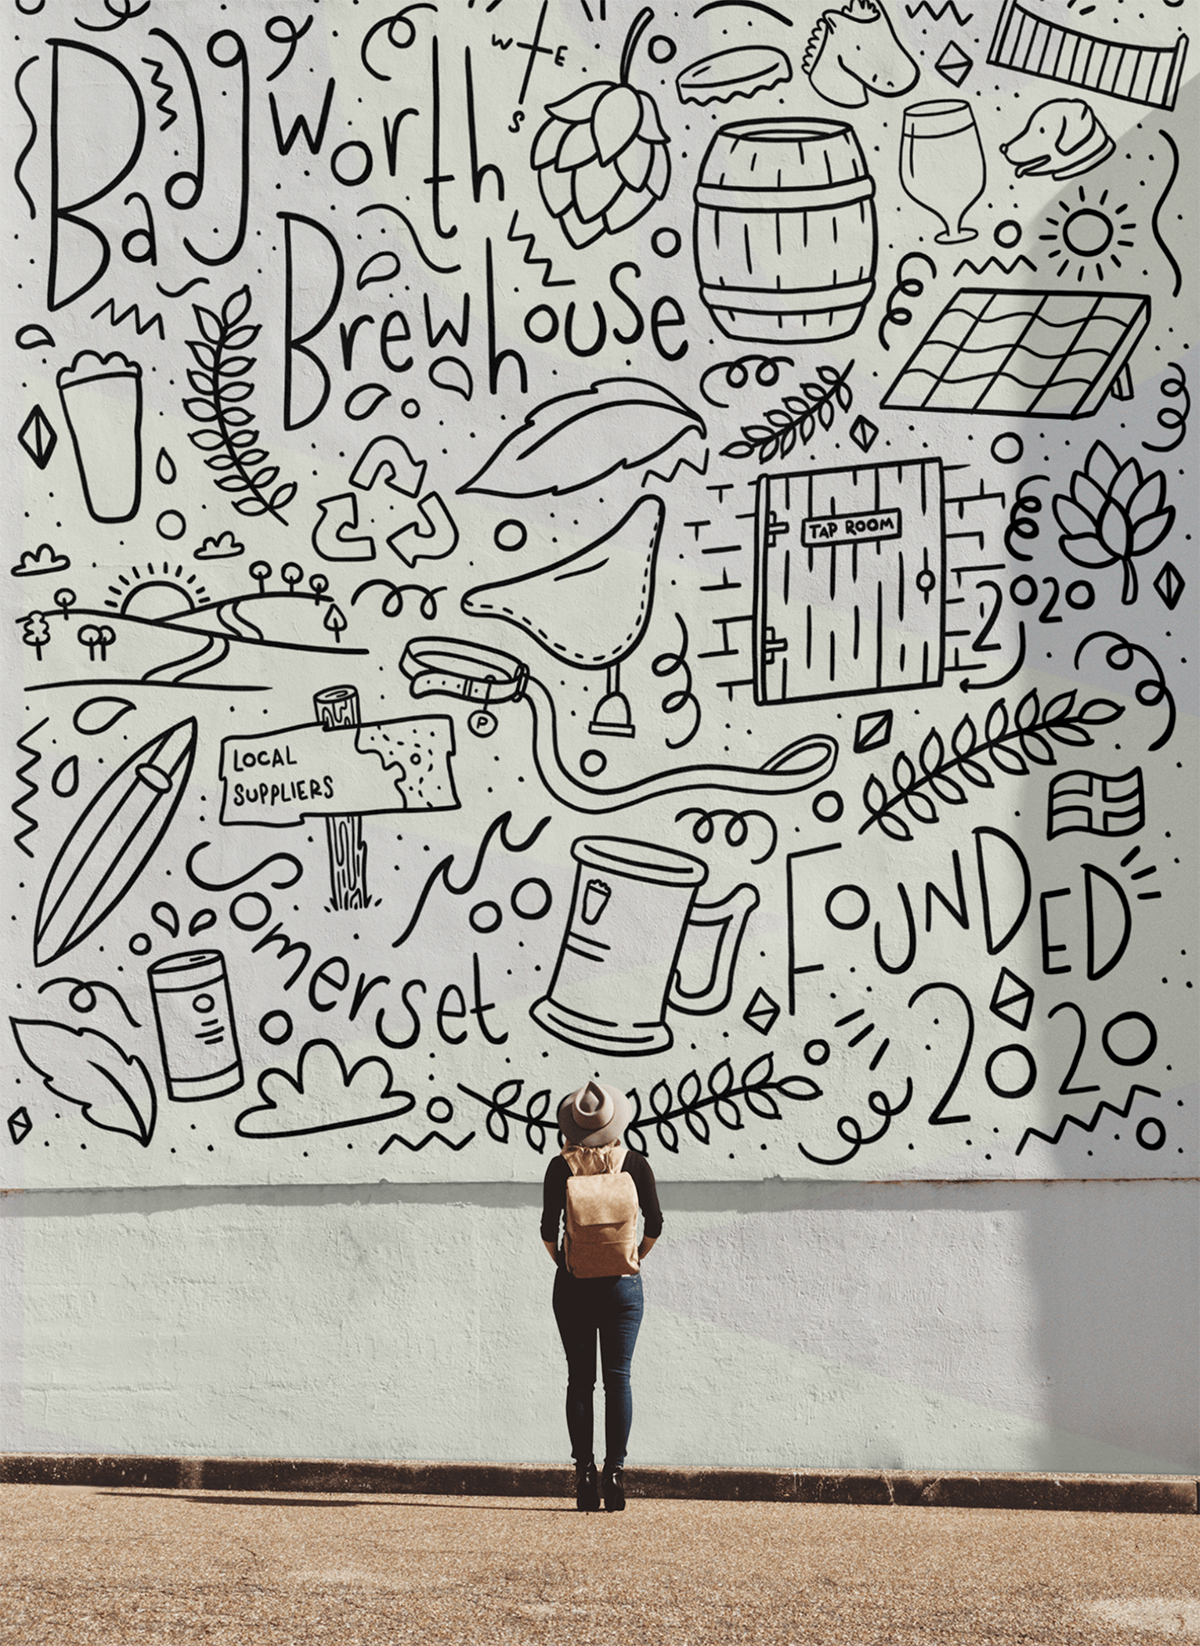 W E
S
Badgworth
Brewhouse
TAP ROOM
2020
P
LOCAL
SUPPLIERS
Somerset
FOUNDED
2020